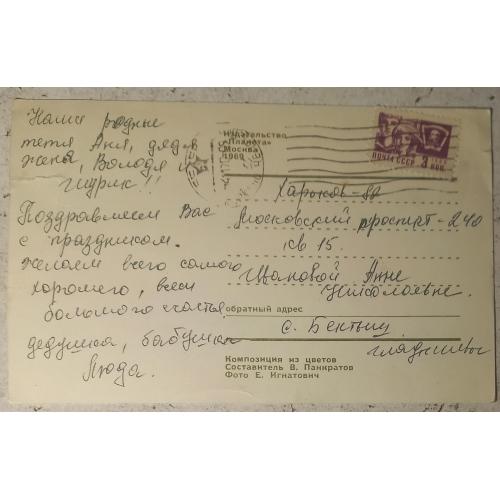 Наши родные
тётя Аня, дядя
Женя, Володя и
!!
Поздравляем Вас
с праздником.
Желаем всего самого
хорошего, всем
большого счастья
дедушка, бабушка
Люда.
Издательство
«Планета»
Москва
1969
ПОЧТА СССР 3 КОП.
Харьков-82
Московский проспект-240
кв 15.
Анне
Николаевне.
обратный адрес
с.
Композиция из цветов
Составитель В. Панкратов
Фото Е. Игнатович